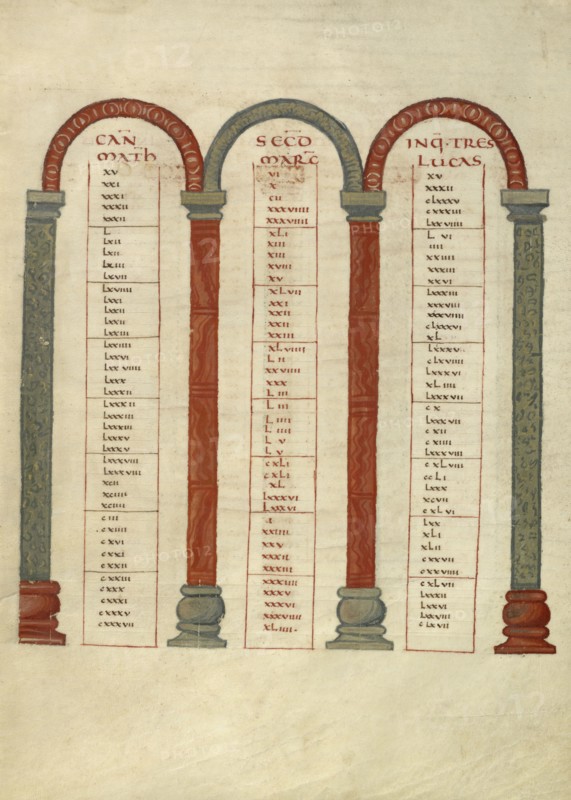 CAN̄
MATH
xv
xxi
xxxi
xxxii
xxxii
L
Lxii
Lxii
Lxiii
Lxvii
Lxviiii
Lxxi
Lxxii
Lxxii
Lxxiii
Lxxiiii
Lxxvi
Lxxviiii
Lxxx
Lxxxii
Lxxxii
Lxxxiii
Lxxxiii
Lxxxv
Lxxxv
Lxxxviii
xcii
xciiii
xciiii
ciii
cxiiii
cxvi
cxxi
cxxii
cxxiii
cxxx
cxxxi
cxxxv
cxxxvii
SECD̄
MARC̄
vi
x
cii
xxxviiii
xxxviiii
xLi
xiii
xiii
xviii
xv
xLvii
xxi
xxii
xxii
xxiii
xLviiii
Lii
xxviiii
xxx
Liii
Liii
Liiii
Liiii
Lv
Lv
cxLi
cxLi
xL
Lxxxvi
Lxxxvi
i
xxiiii
xxv
xxxii
xxxiii
xxxiiii
xxxv
xxxvi
xxxviiii
xLiiii
INQ̄·TRES
LUCAS
xv
xxxii
cLxxxv
cxxxiii
Lxxviiii
Lvi
iiii
xxiiii
xxxiii
xxvi
Lxxxiii
xxxviii
xxxviiii
cLxxxvi
xL
Lxxxv
cLxviii
Lxxxvi
xLiiii
Lxxxvii
cx
Lxxxvii
cxii
cxiiii
Lxxxviii
cxLviii
ccLi
Lxxx
xcvii
cxLvi
Lxx
xLi
xLii
cxxvii
cxxviiii
cxLvii
Lxxxii
Lxxvi
Lxxviii
cLxvii